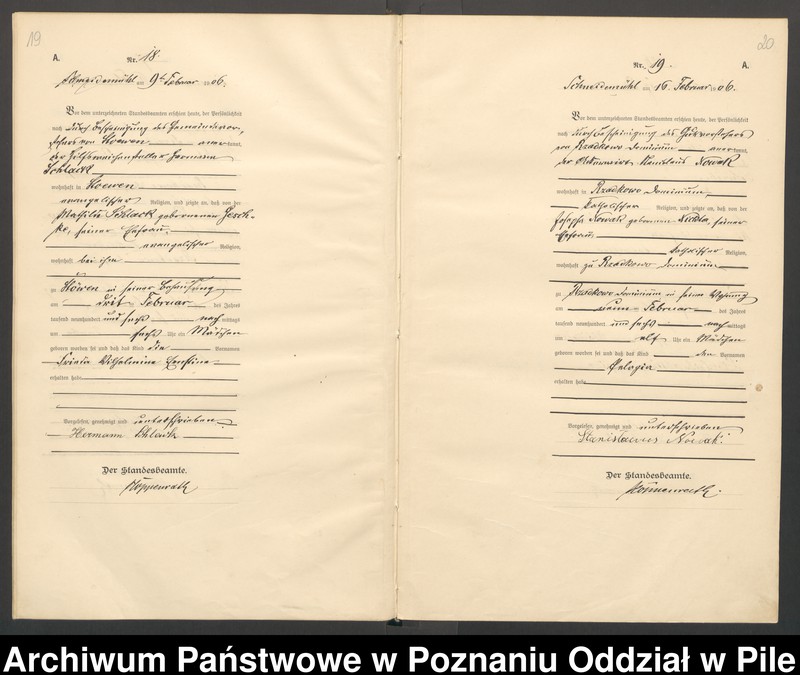 19
A.
Nr. 18
Schneidemühl am 9ten Februar 1906.
Vor dem unterzeichneten Standesbeamten erschien heute, der Persönlichkeit
nach durch Bescheinigung des Gemeindevor-
stehers von Stoewen anerkannt,
der Hilfsweichensteller Hermann
Schlack
wohnhaft in Stoewen
evangelischer Religion, und zeigte an, daß von der
Mathilde Schlack geborenen Jesch-
ke, seiner Ehefrau
evangelischer Religion,
wohnhaft bei ihm
zu Stöwen in seiner Behausung
am drit Februar des Jahres
tausend neunhundert und sechs nach mittags
um sechs Uhr ein Mädchen
geboren worden sei und daß das Kind die Vornamen
Frieda Wilhelmine
erhalten habe
Vorgelesen, genehmigt und unterschrieben
Hermann Schlack
Der Standesbeamte.
20
Nr. 19.
A.
Schneidemühl am 16. Februar 1906.
Vor dem unterzeichneten Standesbeamten erschien heute, der Persönlichkeit
nach durch Bescheinigung des Gutsvorstehers
von Rzadkowo Dominium anerkannt,
der Stanislaus Nowak
wohnhaft in Rzadkowo Dominium
katholischer Religion, und zeigte an, daß von der
Josepha Nowak geborenen seiner
Ehefrau
katholischer Religion,
wohnhaft zu Rzadkowo Dominium
zu Rzadkowo Dominium in seiner Wohnung
am neun Februar des Jahres
tausend neunhundert und sechs nach mittags
um elf Uhr ein Mädchen
geboren worden sei und daß das Kind den Vornamen
Pelagia
erhalten habe
Vorgelesen, genehmigt und unterschrieben
Stanislaus Nowak.
Der Standesbeamte.
Archiwum Państwowe w Poznaniu Oddział w Pile